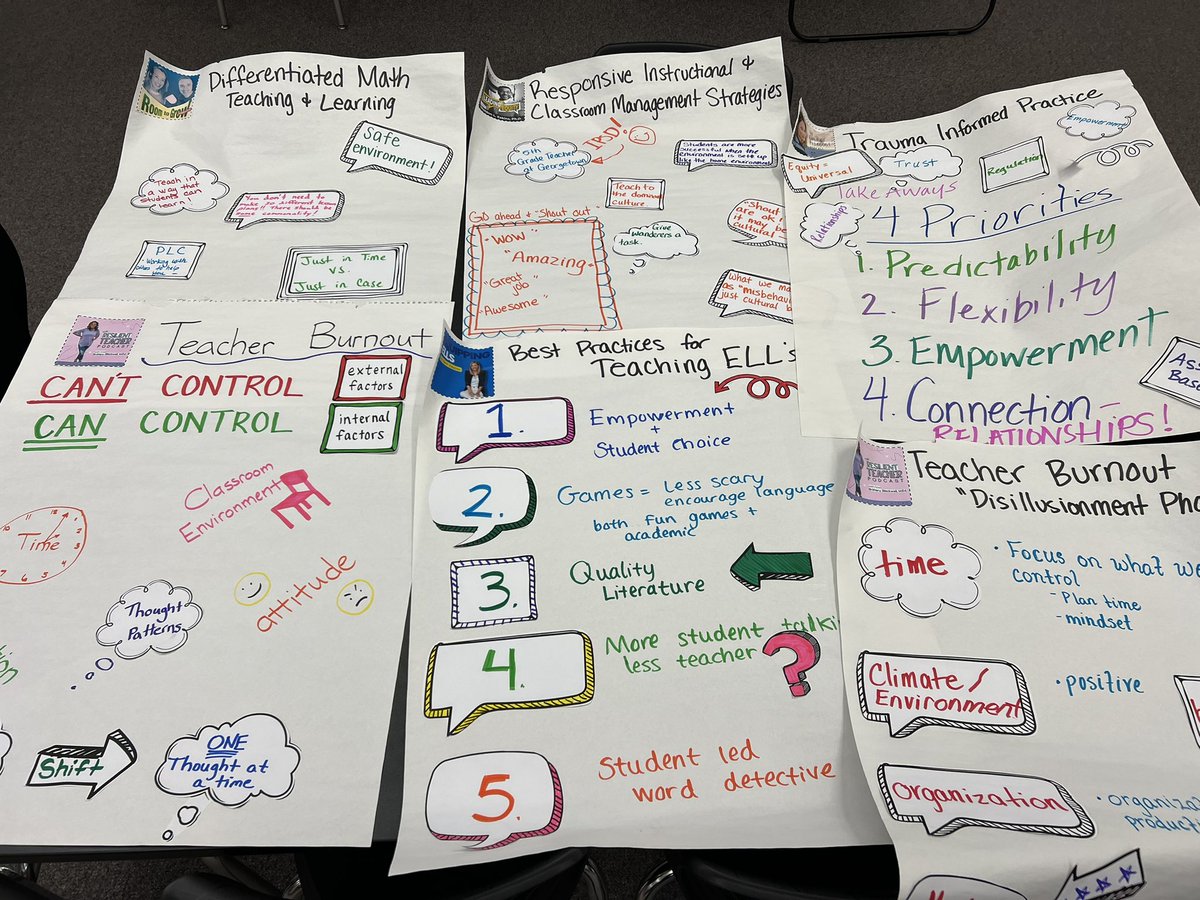 Differentiated Math
Teaching & Learning
ROOM TO GROW
Safe
environment!
Teach in
a way that
students can
learn
You don't need to
make 30 different lesson
plans!! There should be
some commonality!
PLC
Just in Time
vs.
Just in Case
Responsive Instructional &
Classroom Management Strategies
5th
Grade Teacher
at Georgetown
Students are more
successful when the
environment is set up
like the home environment
Teach to
the dominant
culture
GO ahead & "Shout out"
• Wow
"Amazing
"Great
job
Awesome"
Give
wanderers a
task.
"Shout
are ok
it may be
cultural
What we ma
as "misbehav
just cultural
Trauma Informed Practice
Empowerment
Equity =
Universal
Trust
Regulation
Take Aways
Relationships
4 Priorities
1. Predictability
2. Flexibility
3. Empowerment
4. Connection -
RELATIONSHIPS!
Ass
Base
RESILIENT
TEACHER
PODCAST
Teacher Burnout
CAN'T CONTROL
external
factors
CAN CONTROL
internal
factors
Classroom
Environment
Time
attitude
Thought
Patterns
Shift
ONE
Thought at
a time
Best Practices for
Teaching ELL's
1. Empowerment
+
Student Choice
2. Games = Less scary
encourage language
both fun games +
academic
3. Quality
Literature
4. More student talki
less teacher
?
5. Student led
word detective
RESILIENT
TEACHER
PODCAST
Teacher Burnout
"Disillusionment Pha
time
• Focus on what we
control
- Plan time
- mindset
Climate/
Environment
• positive
organization
• organiza
product